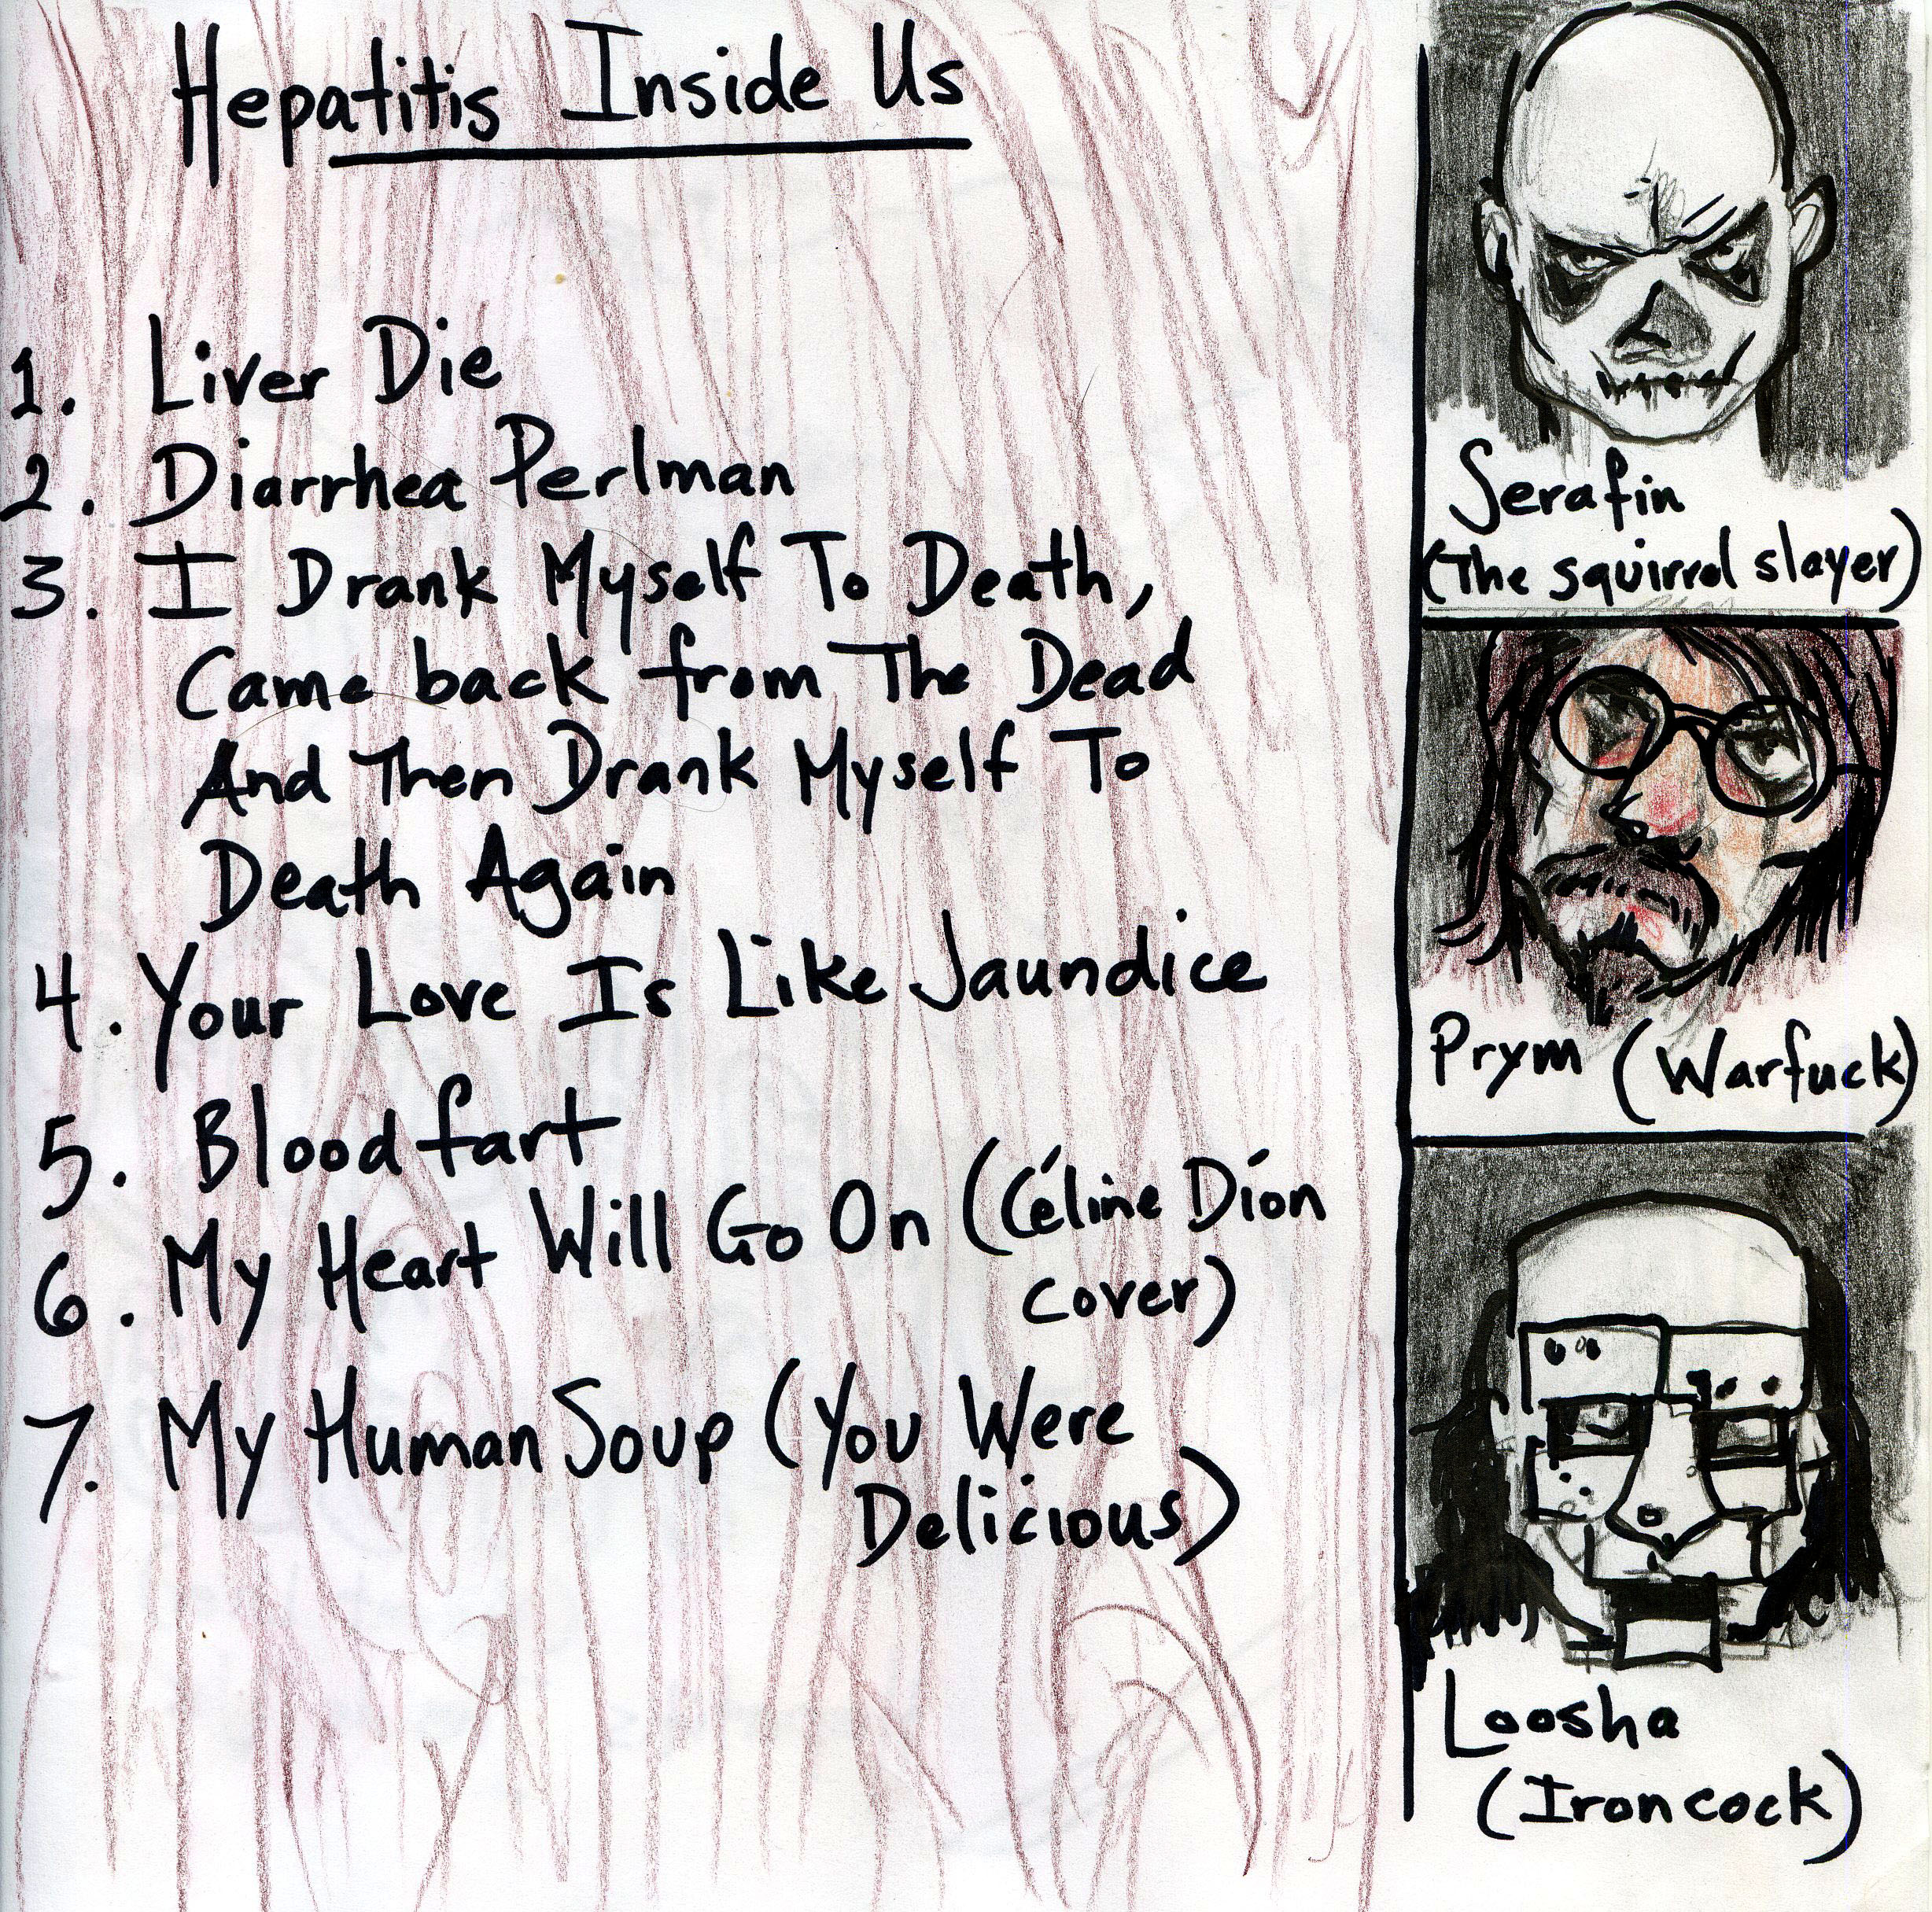 Hepatitis Inside Us
1. Liver Die
2. Diarrhea Perlman
3. I Drank Myself To Death,
Came back from The Dead
And Then Drank Myself To
Death Again
4. Your Love Is Like Jaundice
5. Blood fart
6. My Heart Will Go On (Céline Díon
cover)
7. My Human Soup (You Were
Delicious)
Serafin
(The squirrel slayer)
Prym (Warfuck)
Loosha
(Ironcock)